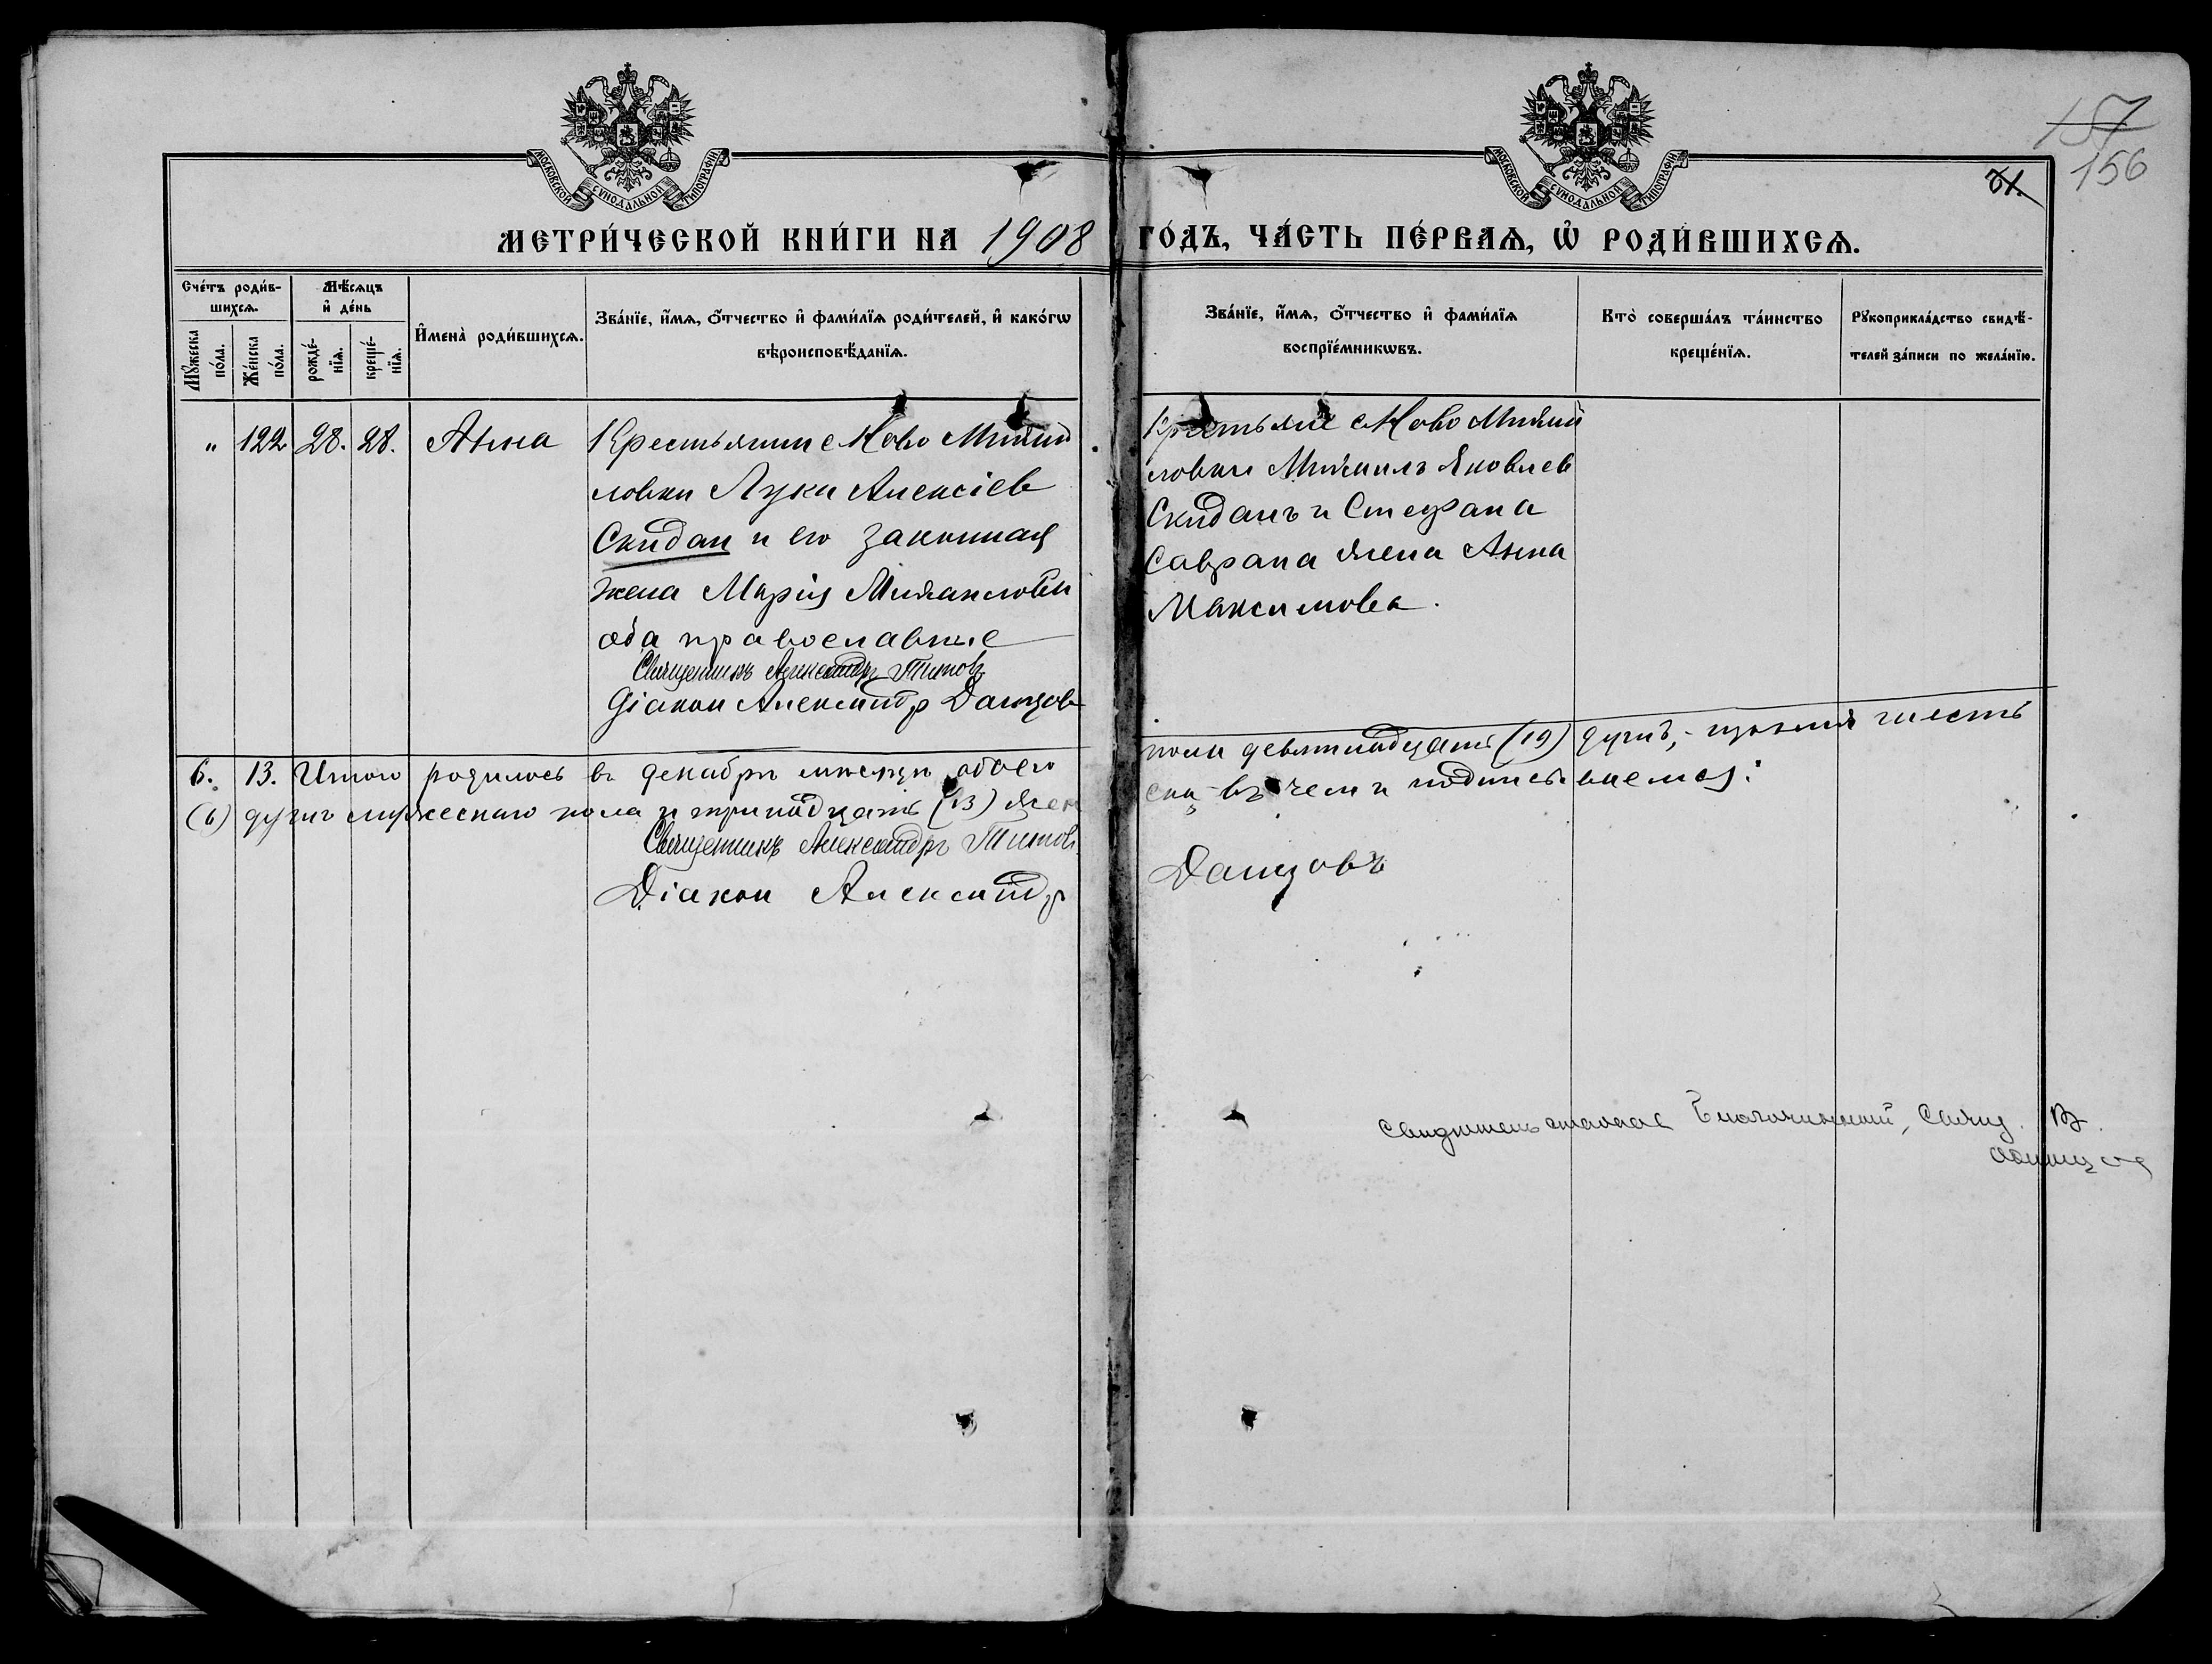 157
156
31.
МОСКОВСКОЙ СѴНОДАЛЬНОЙ ТИПОГРАФІИ
МОСКОВСКОЙ СѴНОДАЛЬНОЙ ТИПОГРАФІИ
МЕТРИ́ЧЕСКОЙ КНИ́ГИ НА 1908 ГО́ДЪ, ЧА́СТЬ ПЕ́РВАѦ, Ѡ҆ РОДИ́ВШИХСѦ.
Сче́тъ роди́в-
шихсѧ.
Мꙋ́жеска по́ла.
Же́нска по́ла.
Мѣ́сѧцъ
и҆ де́нь
рожде́-
нїѧ.
креще́-
нїѧ.
И҆мена̀ роди́вшихсѧ.
Зва́нїе, и҆́мѧ, ѻ҆́тчество и҆ фами́лїѧ роди́телей, и҆ како́гѡ
вѣроисповѣ́данїѧ.
Зва́нїе, и҆́мѧ, ѻ҆́тчество и҆ фами́лїѧ
воспрїе́мникѡвъ.
Кто̀ соверша́лъ та́инство
креще́нїѧ.
Рꙋкоприкла́дство свидѣ́-
телей за́писи по жела́нїю.
" 122 28. 28. Анна
Крестьянин с Ново Михай
ловки Луки Алексіев
Скидан и его законная
жена Марія Михаиловы
оба православные
Священникъ Александръ Титовъ
Діакон Александр Данцов
Крестьяне с Ново Михай
ловки Михаилъ Яковлев
Скиданъ и Стефана
Саврана жена Анна
Максимова.
6. 13. Итого родилось въ декабрѣ мѣсяцѣ обоего
пола девятнадцать (19) душъ, - изъ нихъ шесть
(6) душъ мужескаго пола и тринадцать (13) жен
ска, - въ чем и подписываемся:
Священникъ Александръ Титовъ
Діакон Александр Данцовъ
Свидетельствовал Благочинный, Свящ. В.